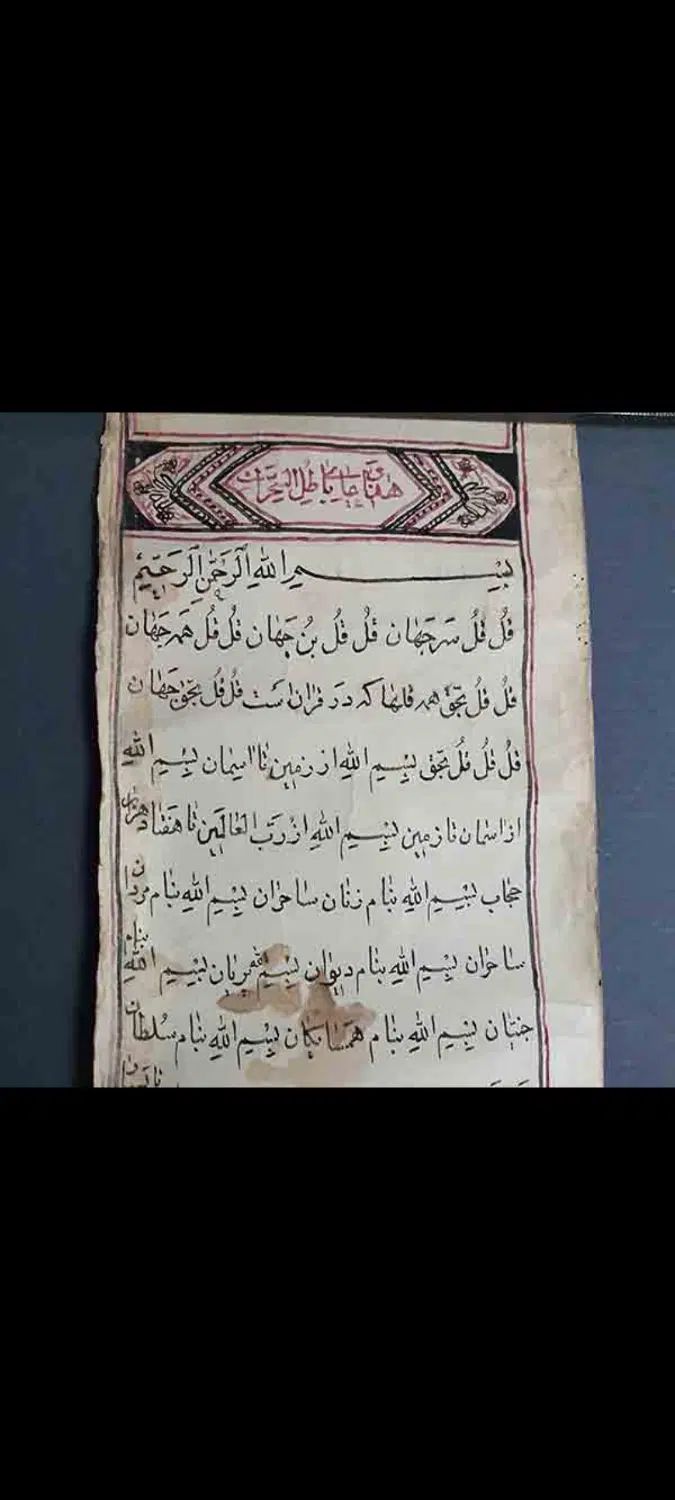 هفتاد جام باطل السحران
بِسْمِ اللهِ الرَّحْمٰنِ الرَّحِيْمِ
قُلْ قُلْ سَرِ جَهان قُلْ قُلْ بُنِ جَهان قُلْ قُلْ هَمه جَهان
قُلْ قُلْ بحَقِّ همه قلها كه دَر قرآن است قُلْ قُلْ بحَقِّ جَهان
قُلْ قُلْ قُلْ بحَقِ بِسْمِ اللهِ از زمين تا اسمان بِسْمِ اللهِ
از اسمان تا زمين بِسْمِ اللهِ از رَبّ العَالَمين تا هَفتاد هزاران
حجاب بِسْمِ اللهِ بنام زنان ساحران بِسْمِ اللهِ بنام مردان
ساحران بِسْمِ اللهِ بنام ديوان بِسْمِ الله پريان بِسْمِ اللهِ بنام
جنيان بِسْمِ اللهِ بنام همسايكان بِسْمِ اللهِ بنام سُلطان